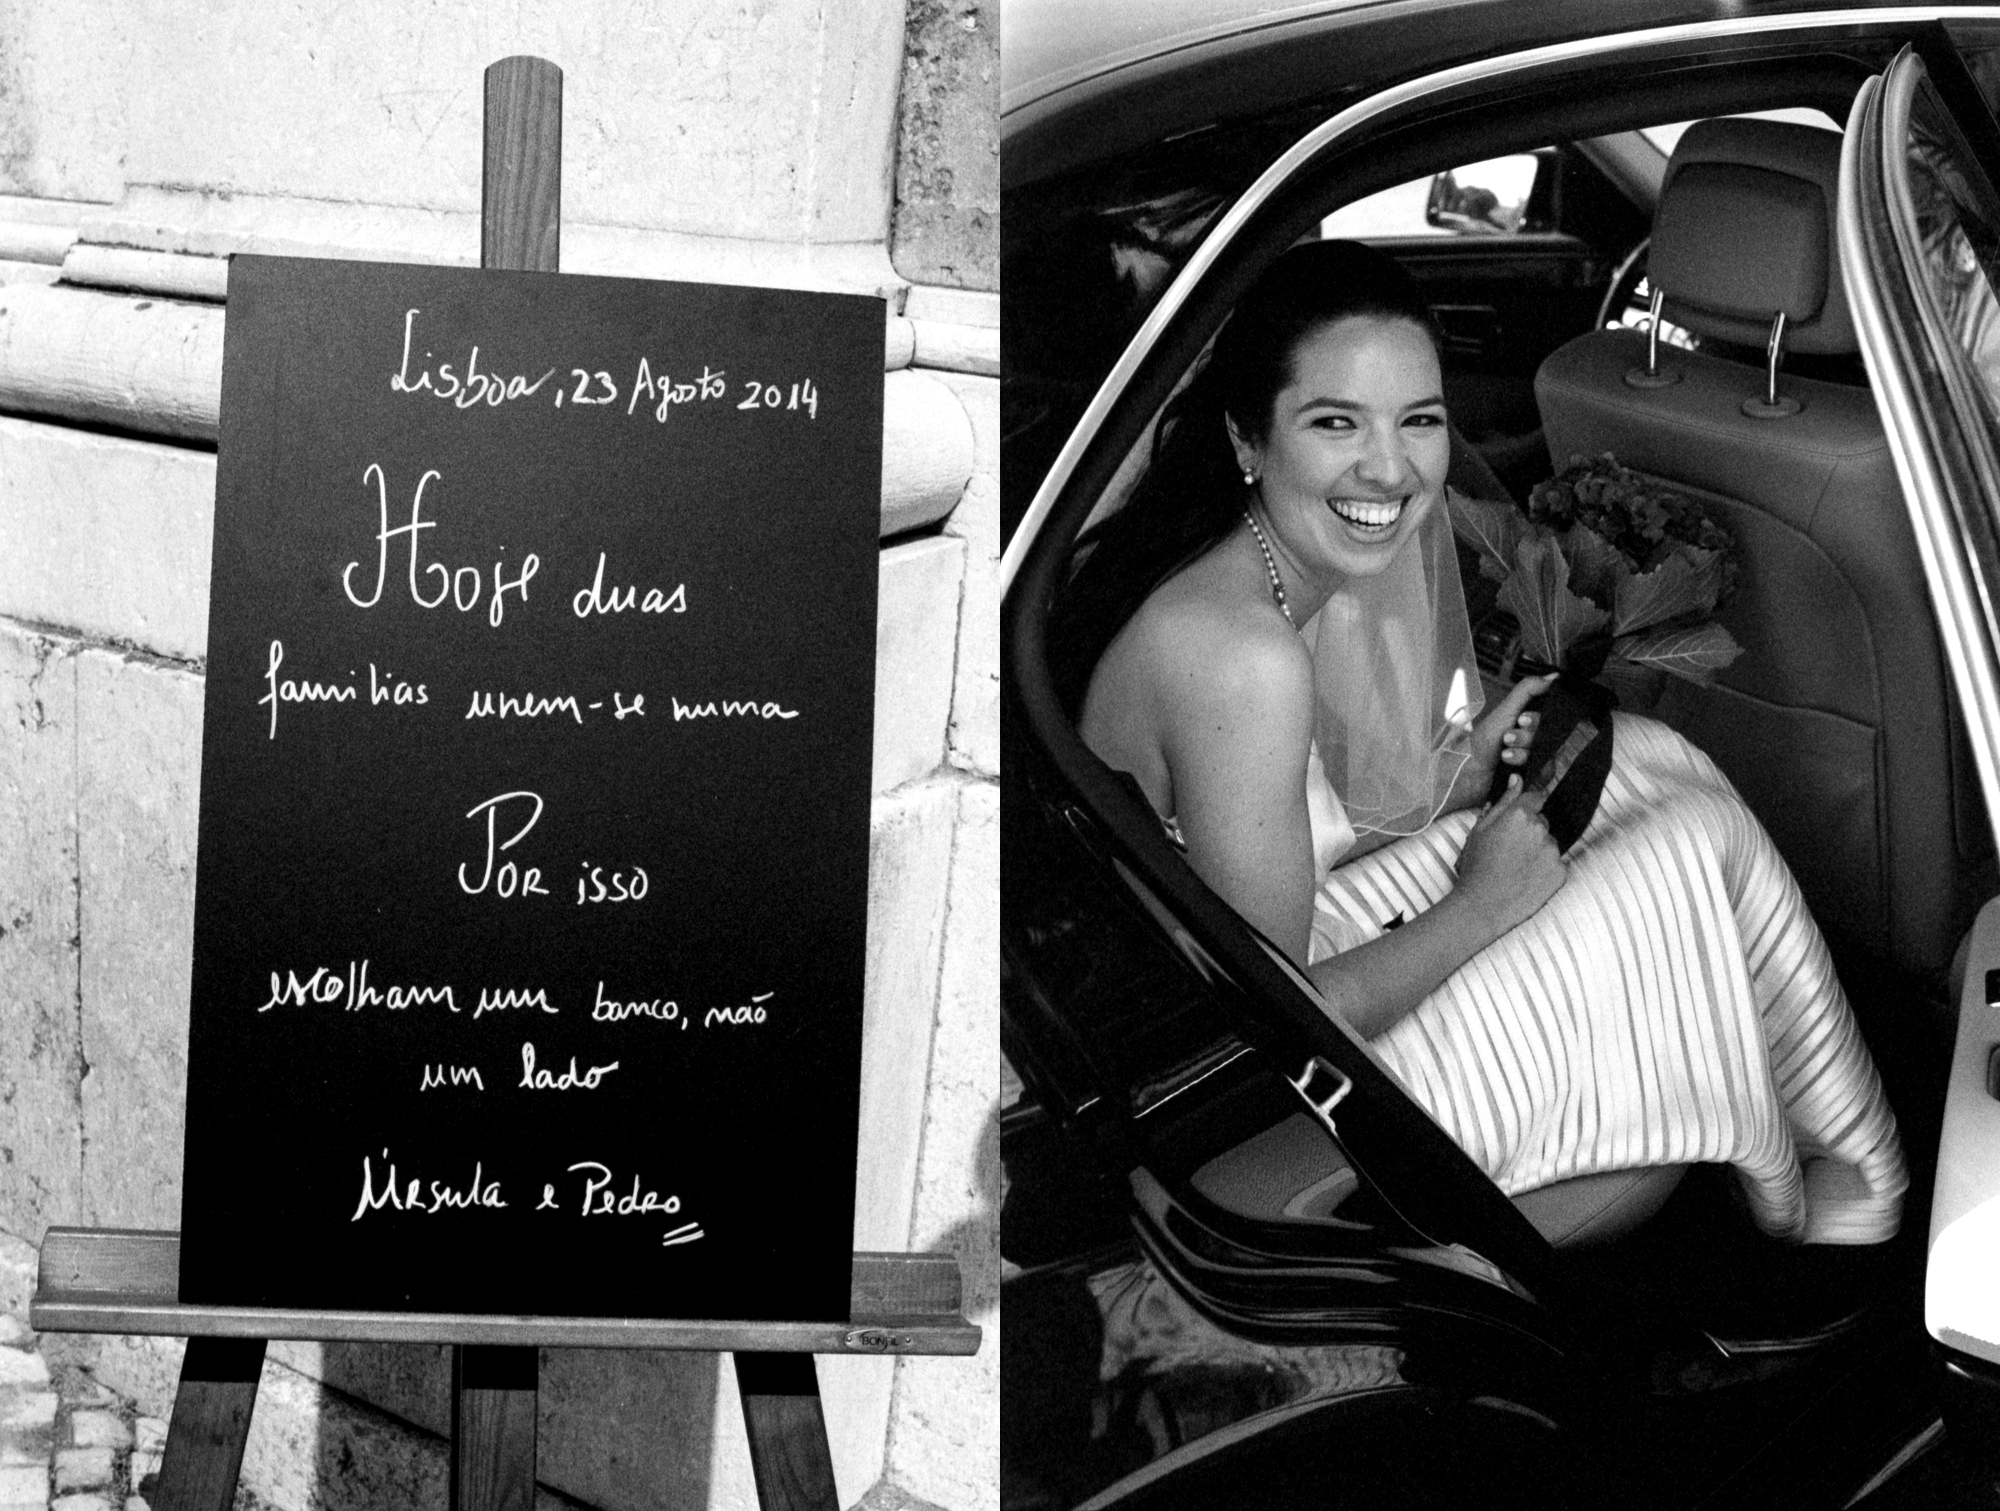 Lisboa, 23 Agosto 2014
Hoje duas
famílias unem-se numa
Por isso
escolham um banco, não
um lado
Úrsula e Pedro
BONFIL